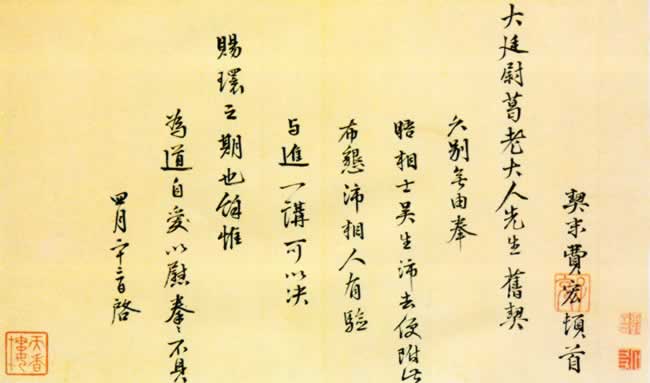 契末費宏頓首
大廷尉葛老大人先生舊契
久別無由奉
晤相士吳生沛去便附此
布懇沛相人有驗
与進一講可以决
賜環之期也餘惟
為道自愛以慰拳〻不具
四月二十二日啓